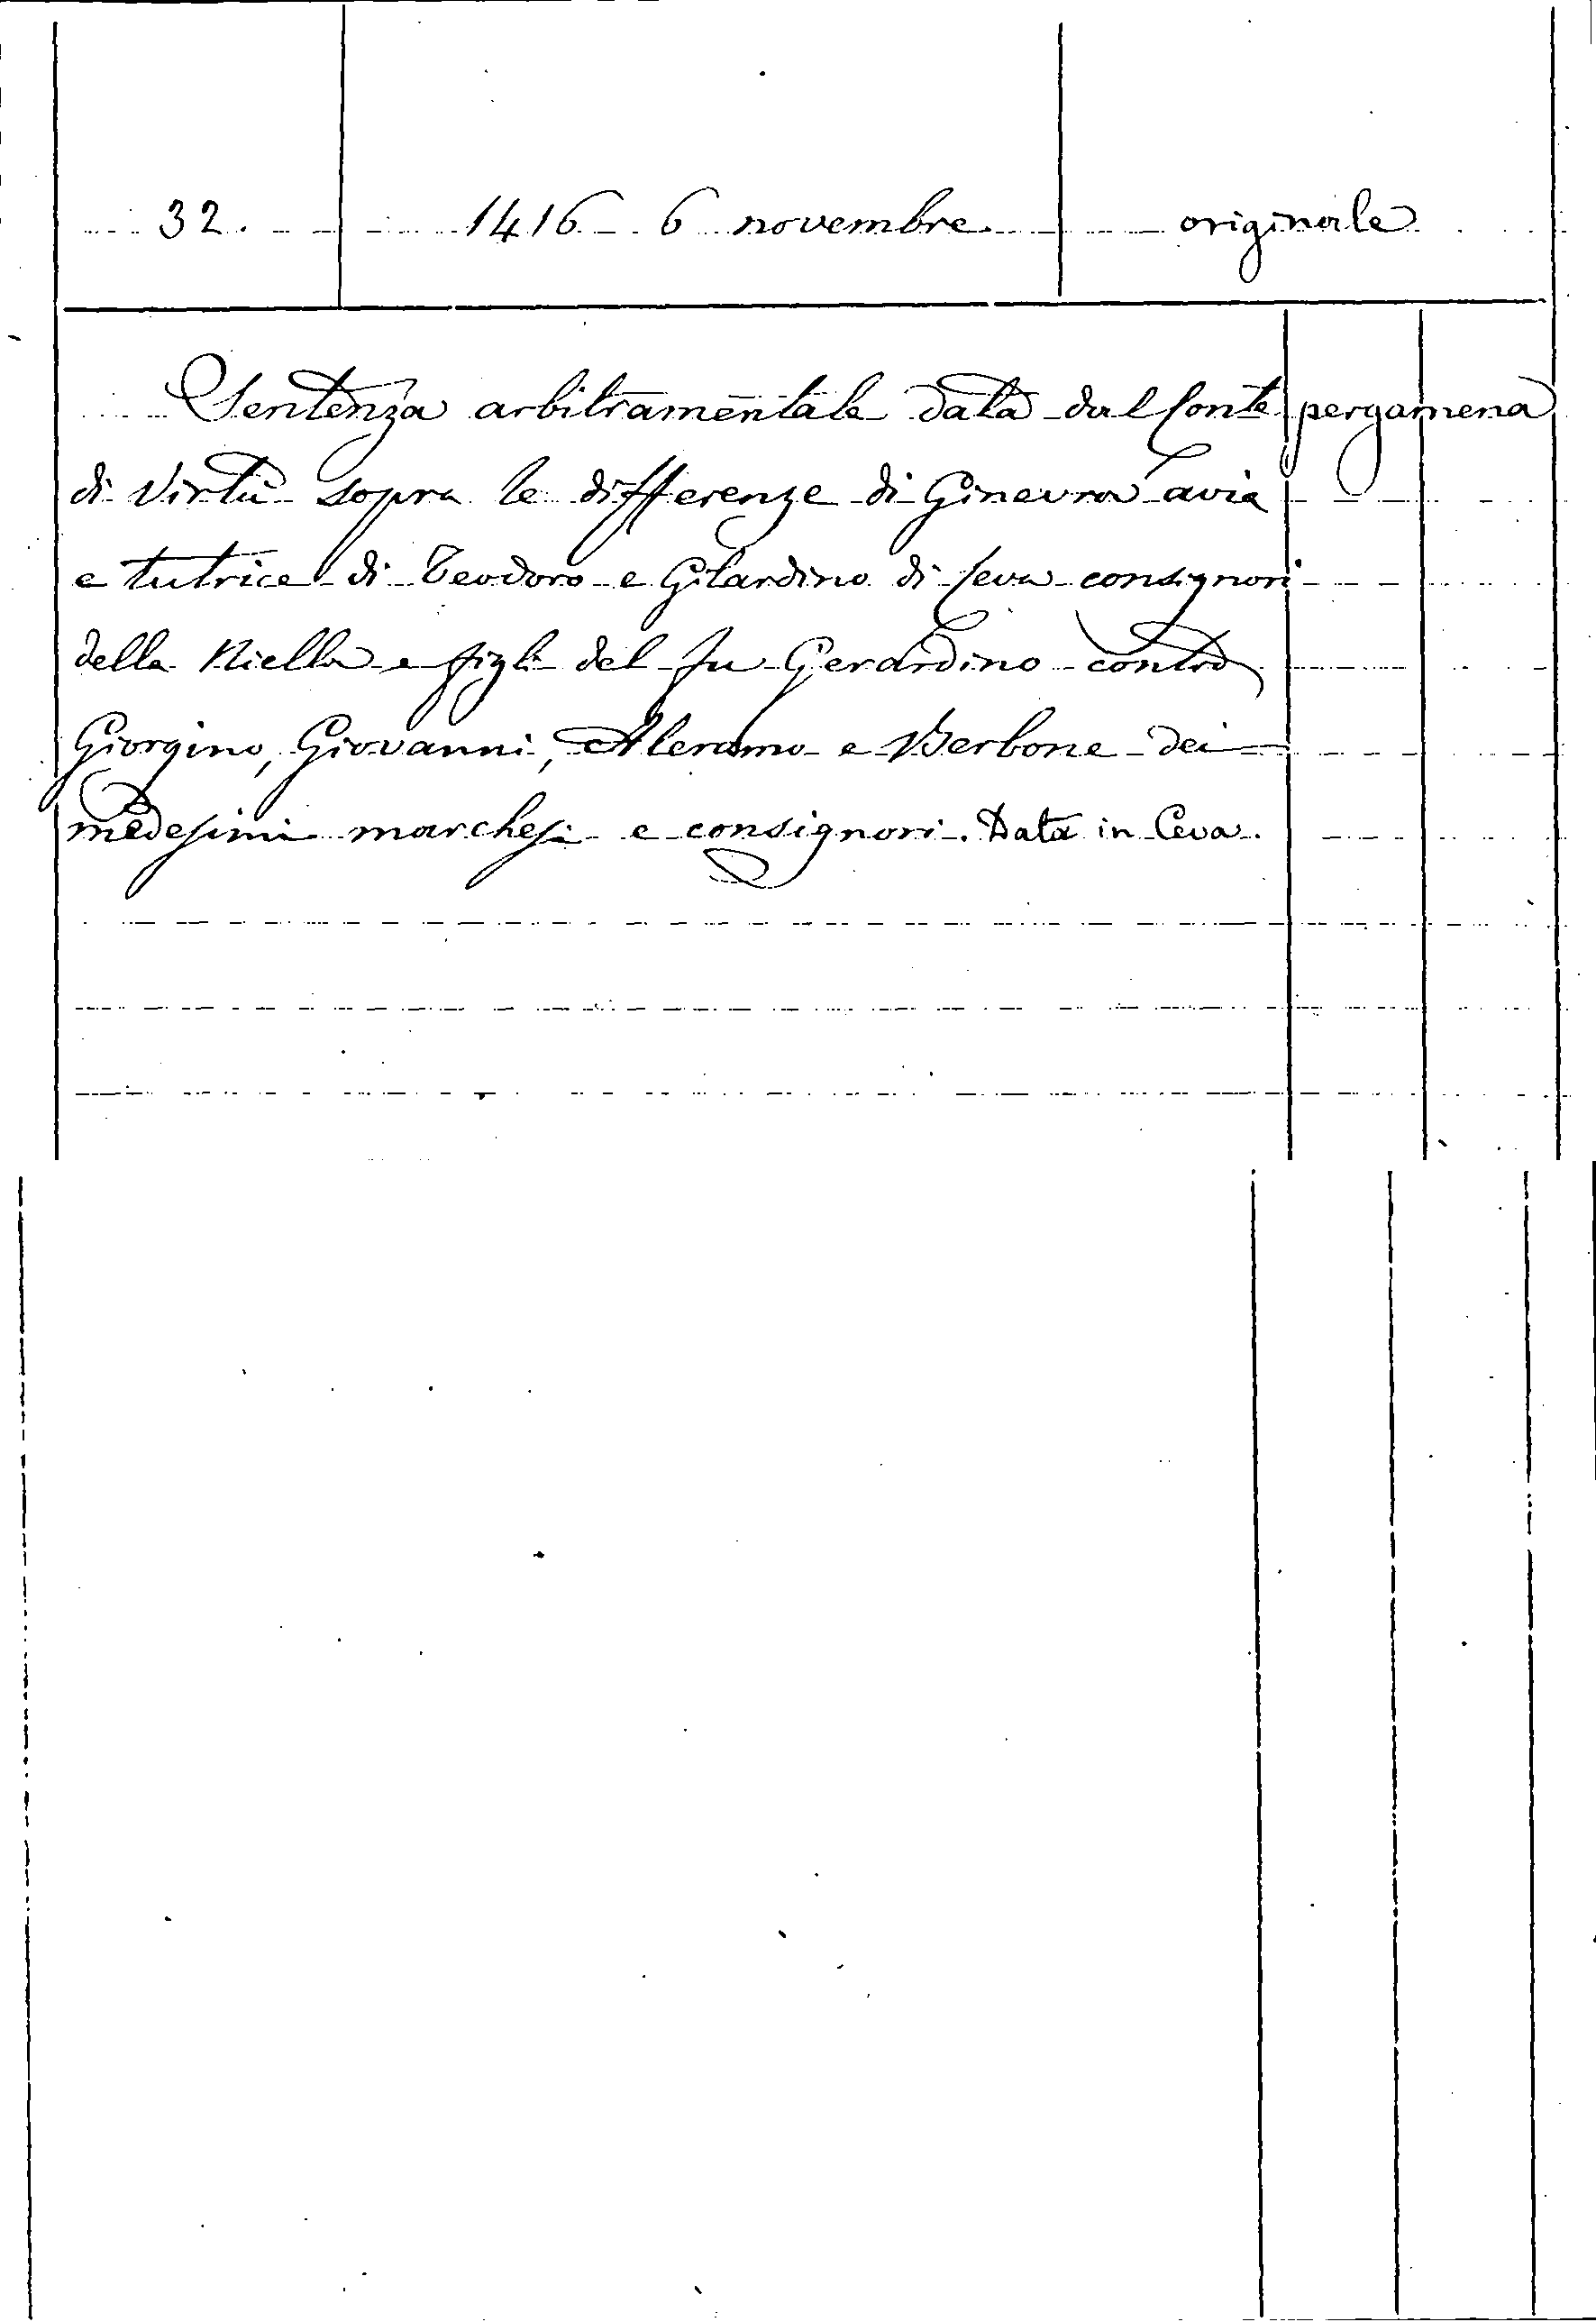 32. 1416 6 novembre. originale
Sentenza arbitramentale data dal Conte pergamena
di Virtù sopra le differenze di Ginevra avia
e tutrice di Teodoro e Gilardino di Ceva consignori
della Niella e figli del fu Gerardino contro
Giorgino, Giovanni, Aleramo e Berbone dei
medesimi marchesi e consignori. Data in Ceva.